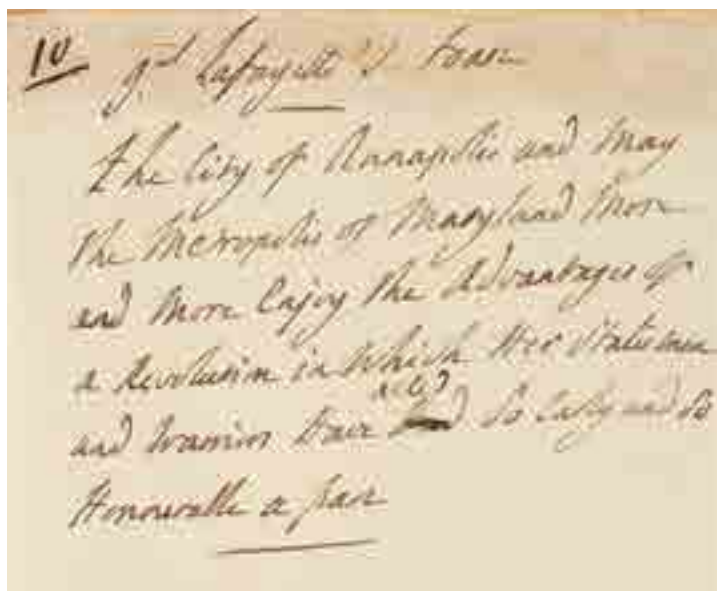 10
gnl Lafayette's toast
The City of Annapolis and May
the Metropolis of Maryland More
and More Enjoy the Advantages of
a Revolution in Which Her Statesmen
and Warriors Have acted So Early and So
Honourable a part